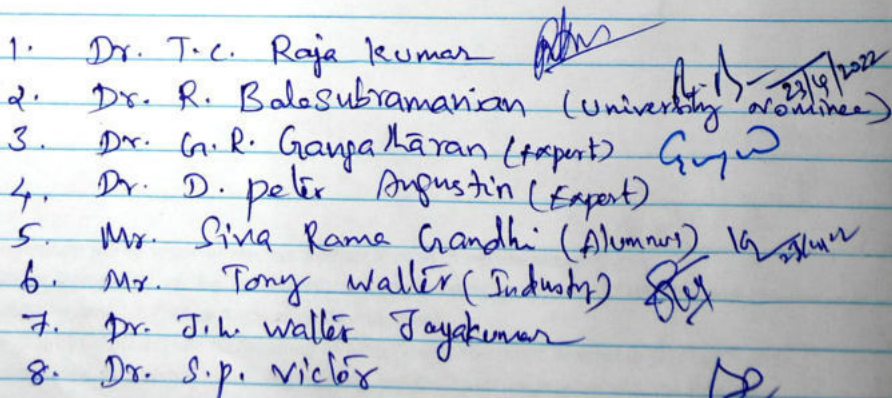 1. Dr. T.C. Raja kumar
2. Dr. R. Balasubramanian (University Nominee) 23/4/2022
3. Dr. G.R. Gangatharan (Expert)
4. Dr. D. peter Augustin (Expert)
5. Mr. Siva Rama Gandhi (Alumnus)
6. Mr. Tony walter (Industry)
7. Dr. J.h. walter Jayakumar
8. Dr. S.p. victor